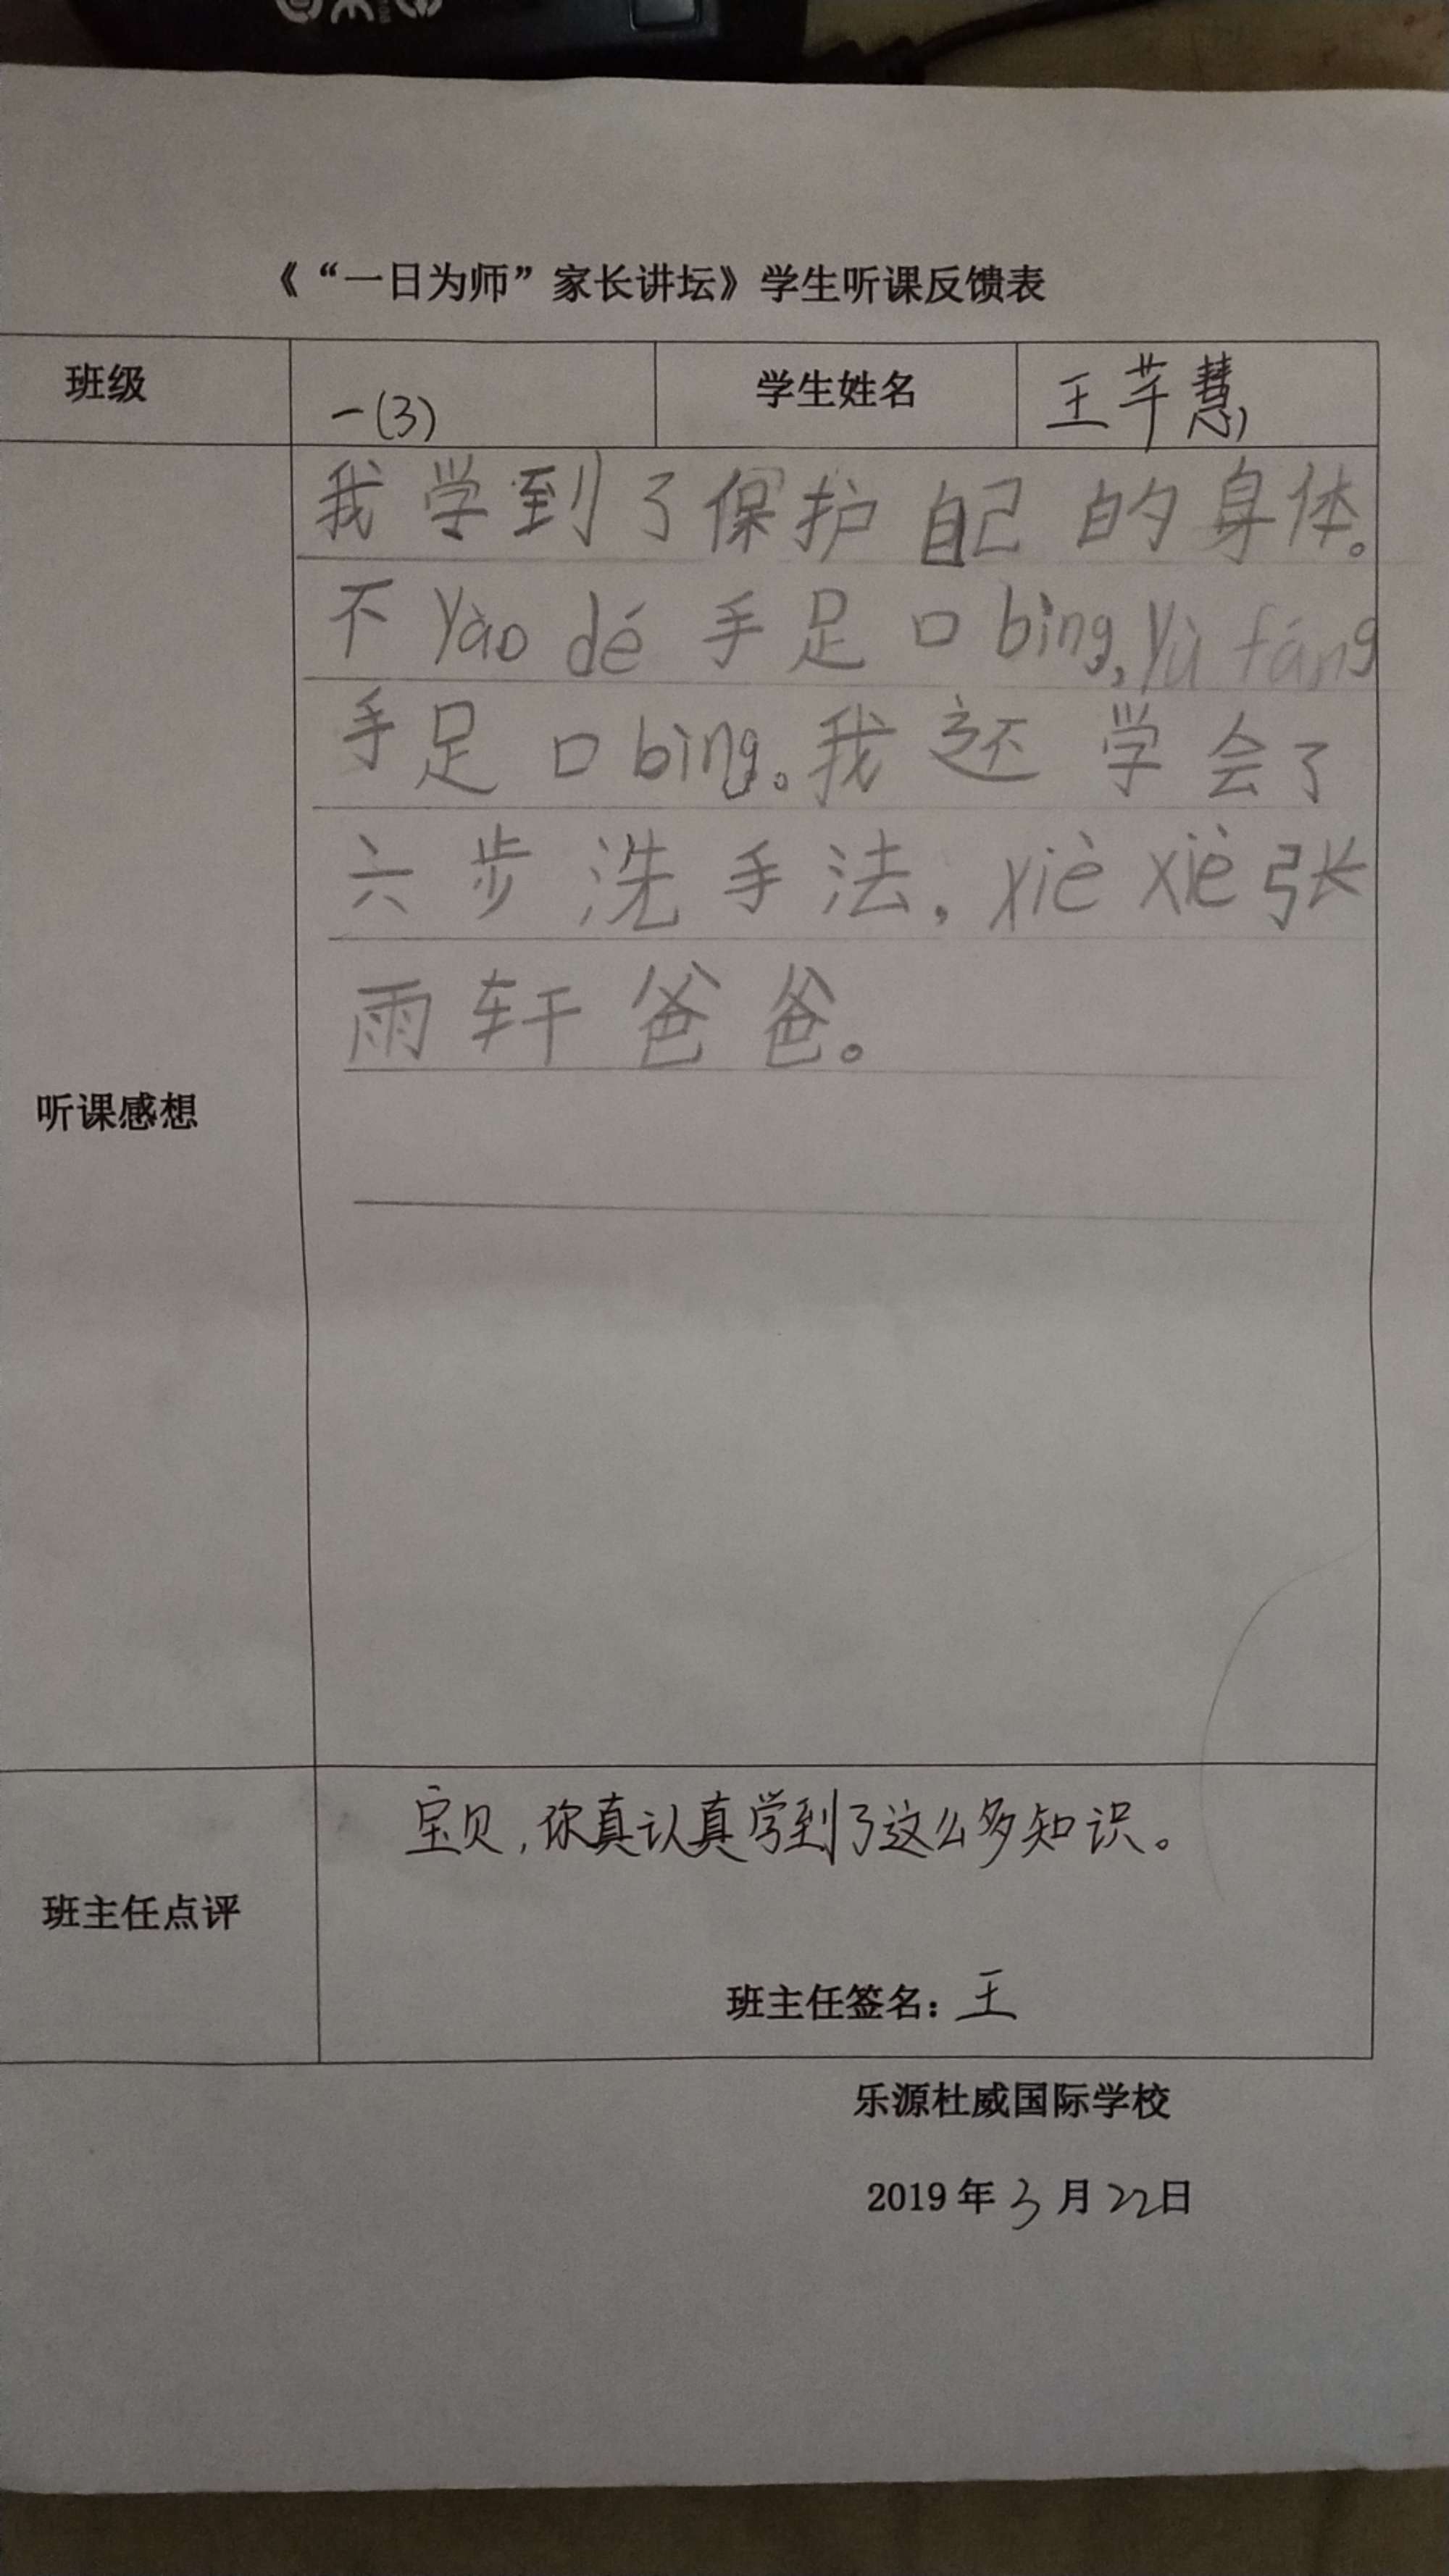 《“一日为师”家长讲坛》学生听课反馈表
班级 一(3) 学生姓名 王芊慧
我学到了保护自己的身体。
不yào dé手足口bìng,yù fáng
手足口bìng。我还学会了
六步洗手法,xiè xiè张
雨轩爸爸。
听课感想
宝贝,你真认真学到了这么多知识。
班主任点评
班主任签名:王
乐源杜威国际学校
2019年3月22日